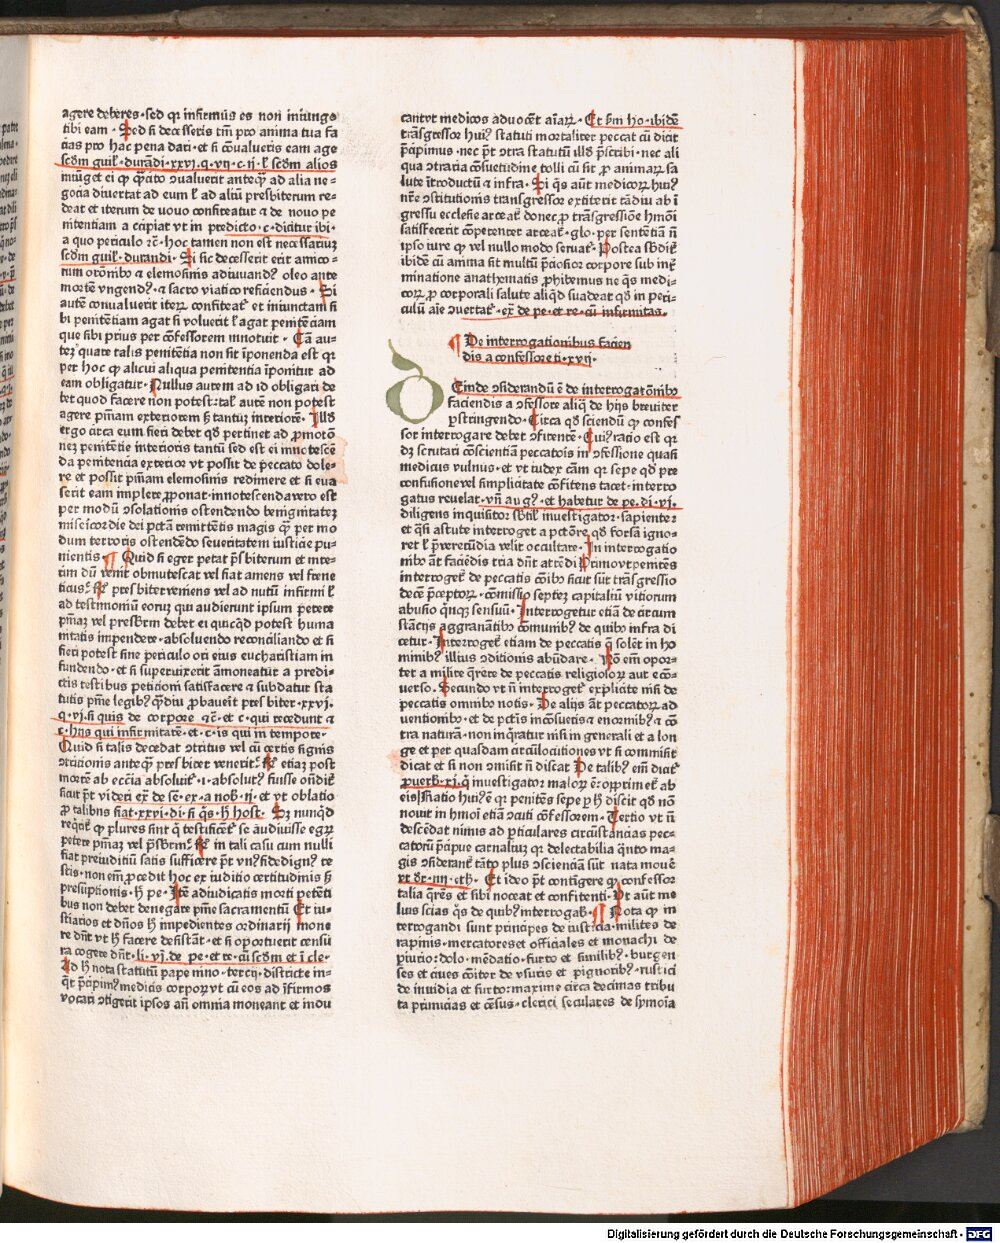 agere deberes·sed qꝛ infirmus es non iniungo
tibi eam· Sed si decesseris tm̄ pro anima tua fa
cias pro hac pena dari·et si cōualueris eam age
scd̄m guil̄·durādi·xxvj·q·vij·c·ij·l̄ scd̄m alios
iniūget ei ꝙ q̄cito ↄualuerit anteq̄ꝫ ad alia ne⸗
gocia diuertat ad eum l̄ ad aliū presbiterum re⸗
deat et iterum de uouo confiteatur ⁊ de nouo pe
nitentiam a cipiat vt in predicto·c·dicitur ibi·
a quo periculo ⁊c̄·hoc tamen non est necessariuꝫ
scd̄m guil̄·durandi·Si sic decesserit erit amico⸗
rum orōnibꝰ ⁊ elemosinis adiuuandꝰ oleo ante
mortē vngendꝰ·⁊ sacro viatico reficiendus·Si
autē conualuerit iterꝝ confiteat᷑ et iniunctam si
bi penitētiam agat si voluerit l̄ agat penitēciam
que sibi prius per cōfessorem innotuit· Cā au⸗
teꝫ quare talis penitētia non sit īponenda est qꝛ
per hoc ꝙ alicui aliqua penitentia īponitur ad
eam obligatur·Nullus autem ad id obligari de
bet quod facere non potest:tal᷑ autē non potest
agere pn̄iam exteriorem sꝫ tantuꝫ interiorē·Illd̄
ergo circa eum fieri debet qd̄ pertinet ad ꝓmotō
neꝫ penitētie interioris tantū sed est ei innotescē
da penitencia exterior vt possit de peccato dole⸗
re et possit pn̄iam elemosinis redimere et si eua
serit eam implere ꝓponat·innotescenda vero est
per modū ↄsolationis ostendendo benignitateꝫ
misericordie dei pctā remittētis magis qꝫ per mo
dum terroris ostendēdo seueritatem iusticie pu⸗
nientis·¶ Quid si eger petat pr̄sbiterum et inte⸗
rim dū venit obmutescat vel fiat amens vel frene
ticus:Rꝰ presbiter veniens vel ad nutū infirmi l̄
ad testimoniū eoruꝫ qui audierunt ipsum petere
pn̄iaꝫ vel presbrm̄ debet ei quicqd̄ potest huma
nitatis impendere·absoluendo reconciliando et si
fieri potest sine periculo ori eius eucharistiam in
fundendo·et si superuixerit āmoneatur a predi⸗
ctis testibus peticioni satisfacere ⁊ subdatur sta
tutis pn̄ie legibꝰ q̄diu ꝓbauerit presbiter·xxvi·
q·vj·si quis de corpore ⁊c̄·et c·qui recedunt ⁊
c·hijs qui infirmitatē·et·c·is qui in tempore·
Quid si talis decedat ↄtritus vel cū certis signis
ↄtricionis anteq̄ꝫ presbiter venerit:Rꝰ etiaꝫ post
mortē ab eccīa absoluit᷑·i·absolutꝰ fuisse ondit᷑
sicut pt̄ videri ex̄ de sē·ex·a nob̄·ij·et vt oblatio
ꝓ talibus fiat·xxvi·di·si q̄s·ħ host·Sꝫ nunqd̄
reqrit᷑ ꝙ plures sint q̄ testificēt᷑ se audiuisse egrꝝ
petere pn̄iaꝫ vel pr̄sbrm̄:Rꝰ in tali casu cum nulli
fiat preiuditiū satis sufficere pt̄ vnꝰ fidedignꝰ te
stis·non em̄ ꝓcedit hoc ex iuditio certitudinis sꝫ
presūptionis·ħ pe·Itē adiudicatis morti petēti
bus non debet denegare pn̄ie sacramentū Et iu⸗
sticiarios et dn̄os ħ impedientes ordinarij mone
re dn̄t vt ħ facere desistāt·et si oportuerit censu
ra cogere dn̄t·li·vj·de pe·et re·cū scd̄m et i cle·
Ad ħ nota statutū pape inno·tercij·districte in⸗
q̄t p̄cipimꝰ medicis corporꝝ vt cū eos ad īfirmos
vocari ↄtigerit ipsos an̄ omnia moneant et indu
cantvt medicos aduocēt aīarꝝ·Et sm̄ ho·ibidē
trāsgressor huiꝰ statuti mortaliter peccat cū dicit
p̄cipimus·nec pt̄ ↄtra statutū illd̄ p̄scribi·nec ali
qua ↄtraria cōsuetudine tolli cū sit ꝓ animarꝝ sa
lute ītroductū ⁊ infra·Si q̄s aūt medicorꝝ huiꝰ
nr̄e ↄstitutionis transgressor extiterit tādiu ab ī
gressu ecclesie arceat᷑ donec ꝓ trāsgressiōe hmōi
satisfecerit cōpetenter arceat᷑·glo·per sentētiā n̄
ipso iure ꝙ vel nullo modo seruat᷑·Postea sb̄dit᷑
ibidē cū anima sit multū p̄ciosior corpore sub int᷑
minatione anathematis ꝓhibemus ne q̄s medi⸗
corꝝ ꝓ corporali salute aliqd̄ suadeat qd̄ in peri⸗
culū aīe ↄuertat᷑·ex̄ de pe·et re·cū infirmitas·
¶ De interrogationibus facien
dis a confessore ti·xvij·
DEinde ↄsiderandū ē de interrogatōnibꝰ
faciendis a ↄfessore aliq̄ de hijs breuiter
pstringendo·Circa qd̄ sciendū ꝙ confes
sor interrogare debet ↄfitentē·Cuiꝰ ratio est qꝛ
dꝫ scrutari cōscientiā peccatois in ↄfessione quasi
medicus vulnus·et vt iudex cām qꝛ sepe qd̄ pre
confusione vel simplicitate cōfitens tacet·interro
gatus reuelat·vn̄ augꝰ·et habetur de pe·di·vj·
diligens inquisitor sb̄til᷑ inuestigator·sapienter
et q̄si astute interroget a pctōre qd̄ forsā igno⸗
ret l̄ p̄verecūdia velit occultare·In interrogatio
nibꝰ aūt faciēdis tria dn̄t attēdi Primo vt penitēs
interroget᷑ de peccatis cōibꝰ sicut sūt trāsgressio
decē p̄ceptorꝝ·cōmissio septeꝫ capitaliū vitiorum
abusio qnqꝫ sensuū·Interrogetur etiā de circum
stācijs aggrauātibꝰ cōmunibꝰ de quibꝰ infra di
cetur·Interroget᷑ etiam de peccatis q̄ solēt in ho
minibꝰ illius ↄditionis abūdare·Nō em̄ opor⸗
tet a milite q̄rere de peccatis religiosorꝝ aut ecō⸗
uerso·Secundo vt n̄ interroget᷑ explicite nisi de
peccatis omnibꝰ notis·De alijs āt peccatorꝝ ad
uentionibꝰ·et de pctīs incōsuetis ⁊ enormibꝰ ⁊ cō
tra naturā·non inq̄ratur nisi in generali et a lon
ge et per quasdam circūlocutiones vt si commisit
dicat et si non ↄmisit n̄ discat De talibꝰ em̄ dicit᷑
prouerb̄·xi·q̄ inuestigator malorꝝ ē·opprimet᷑ ab
eis Ratio huiꝰ ē qꝛ penitēs sepe p ħ discit qd̄ nō
nouit in hmōi etiā ↄcuti cōfessorem·Tertio vt n̄
descēdat nimis ad ꝑticulares circūstancias pec⸗
catorū p̄cipue carnaliuꝫ qꝛ delectabilia q̄nto ma⸗
gis ↄsiderant᷑ tāto plus ↄscienciā sūt nata mouē
vt dr̄·iiij·eth·Et ideo pt̄ contigere ꝙ confessor
talia q̄rēs et sibi noceat et confitenti·Vt aūt me
lius scias q̄s de quibꝰ interrogabꝰ·¶ Nota ꝙ in
terrogandi sunt principes de iusticia·milites de
rapinis·mercatores et officiales et monachi de
ꝑiurio:dolo·mēdatio·furto et similibꝰ·burgen
ses et ciues cōiter de vsuris et pignoribꝰ·rustici
de inuidia et furto:maxime circa decimas tribu
ta primicias et cēsus·clerici seculares de symoīa
Digitalisierung gefördert durch die Deutsche Forschungsgemeinschaft · DFG